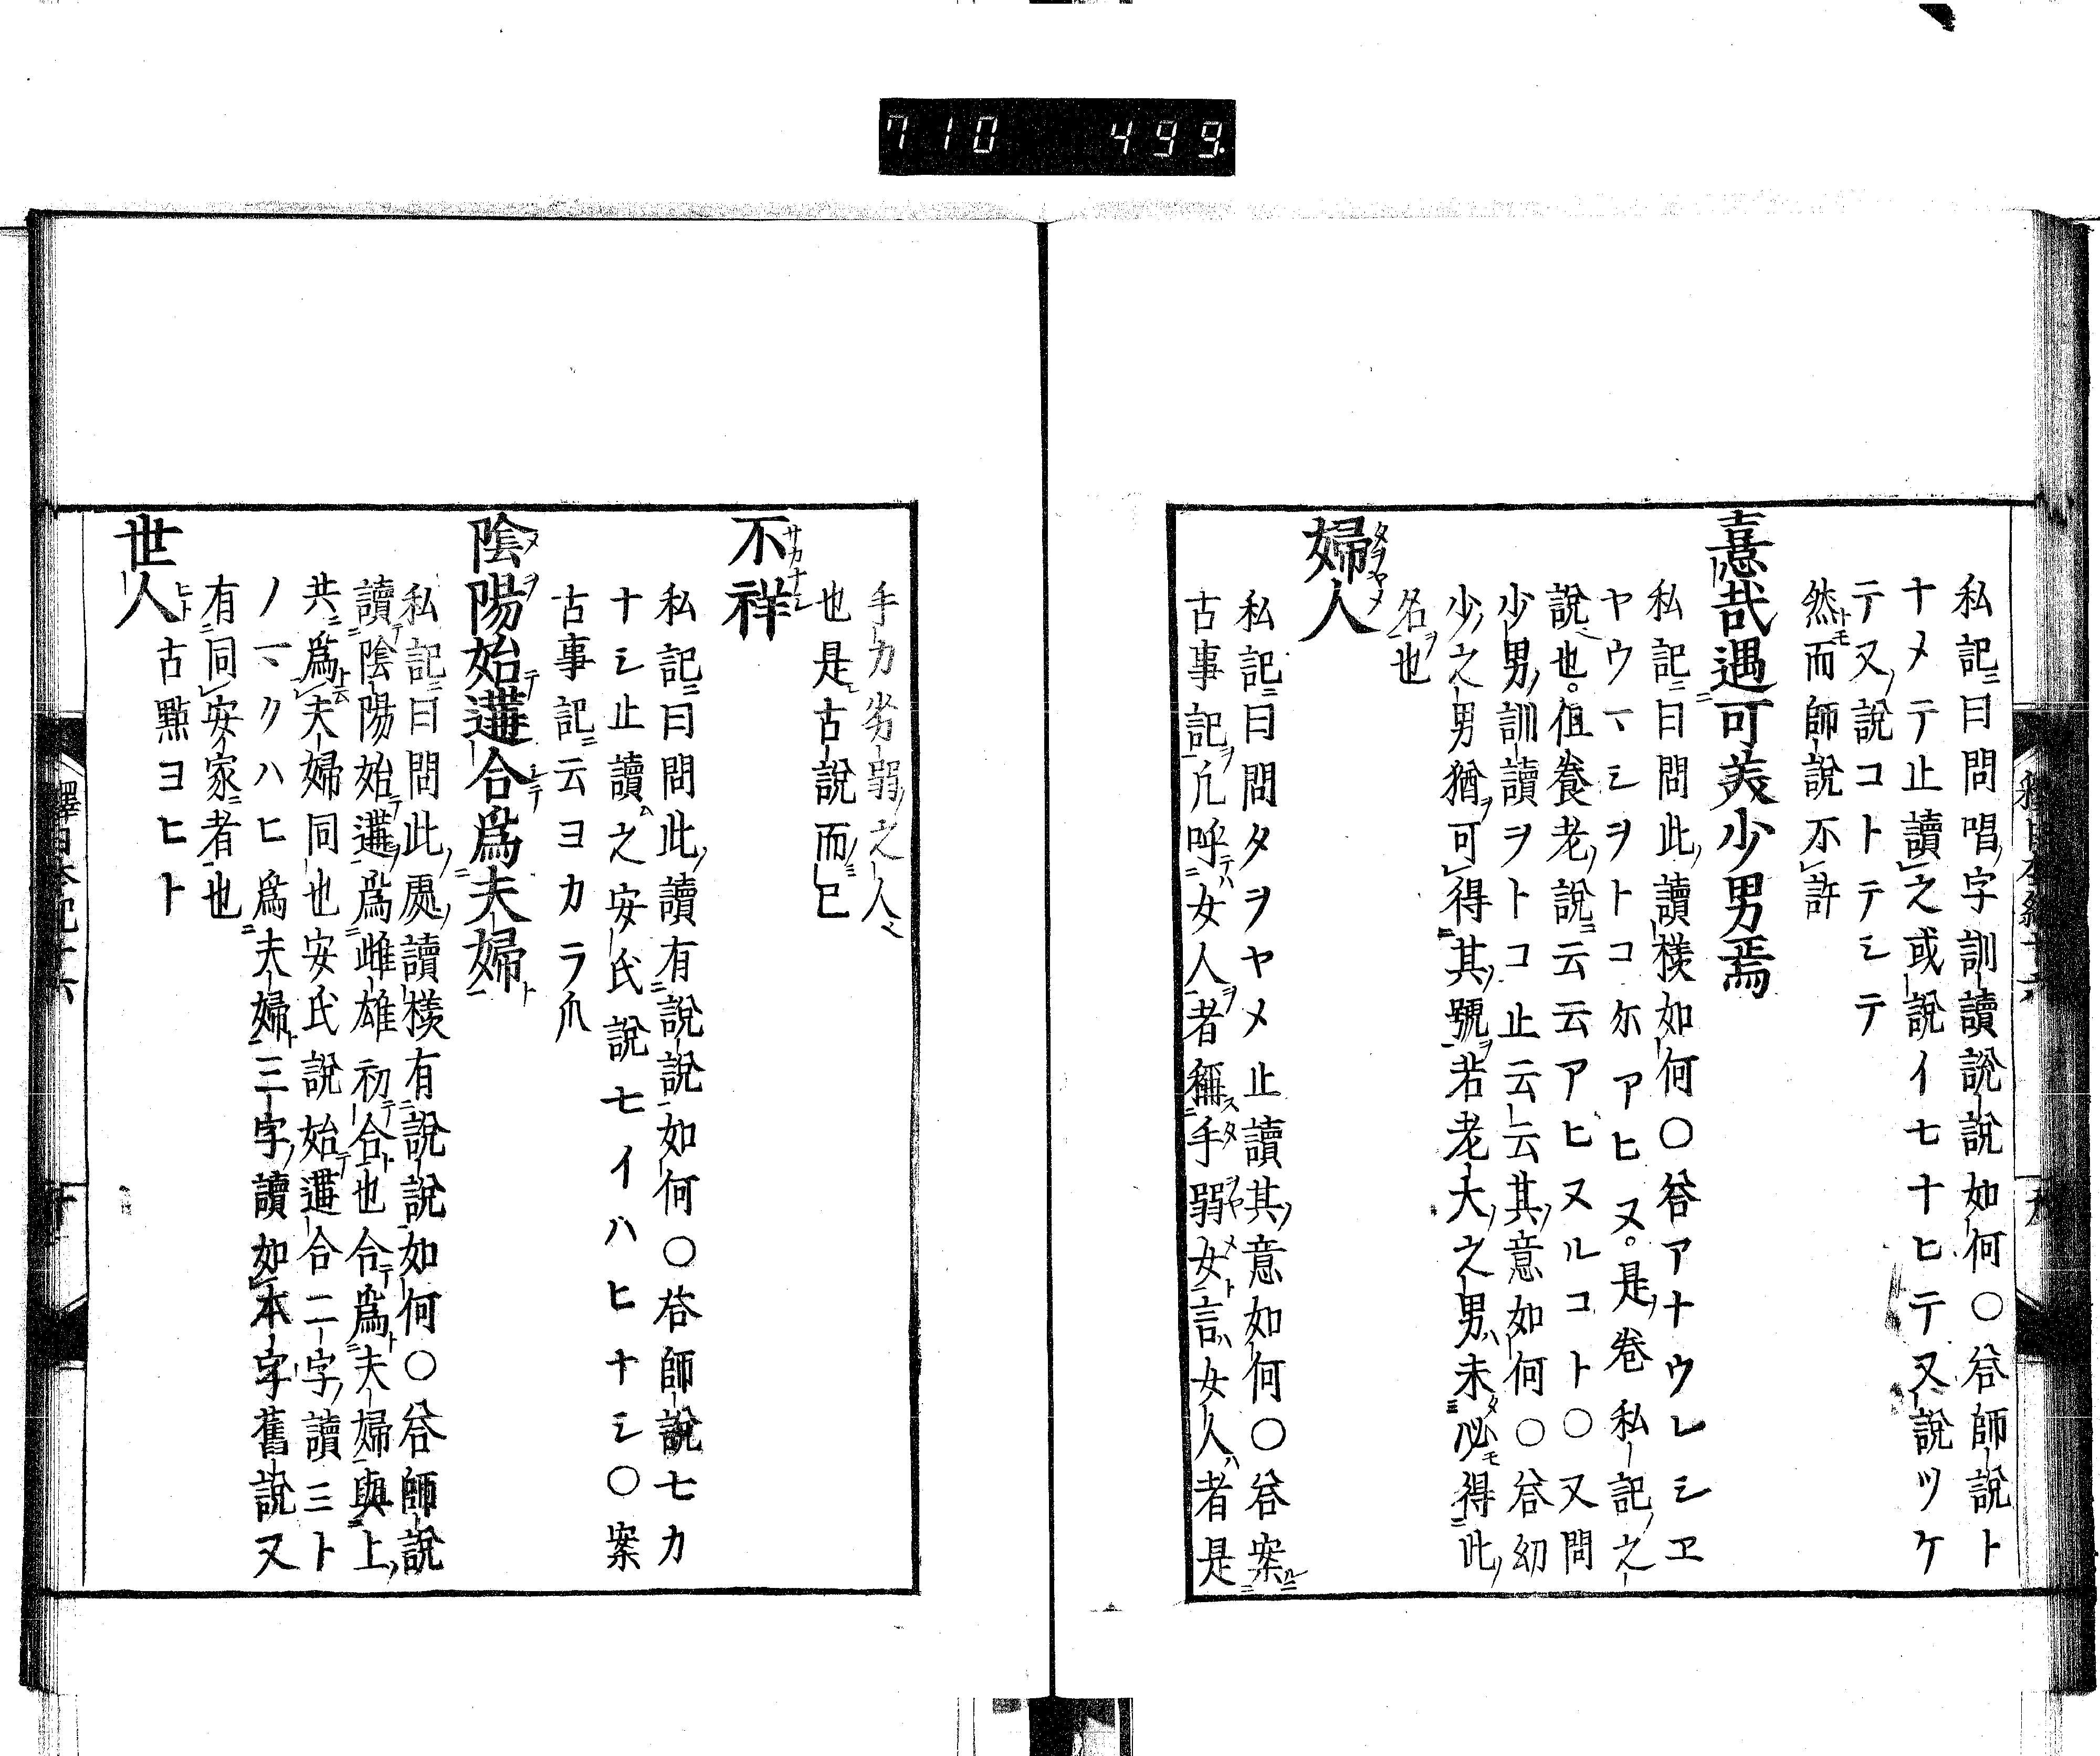 710 499
私記曰問唱字訓讀說說如何〇答師說ト
ナメテ止讀之或說イ七ナヒテ又說ツケ
テ又說コトテミテ
然而師說不許
憙哉遇可美少男焉
私記曰問此讀樣如何〇答アナウレシヱ
ヤウマシヲトコ尓アヒヌ。是巻私記之
說也。但養老說云云アヒヌルコト〇又問
少男訓讀ヲトコ止云云其意如何〇答幼
少之男猶可得其號若老大之男未必得此
名也
婦人
私記曰問タヲヤメ止讀其意如何〇答案
古事記凡呼女人者稱手弱女言女人者是
手力劣弱之人
也是古說而已
不祥
私記曰問此讀有說說如何〇答師說七カ
ナシ止讀之安氏說七イハヒナシ〇案
古事記云ヨカラ爪
陰陽始遘合爲夫婦
私記曰問此處讀樣有說說如何〇答師說
讀陰陽始遘爲雌雄初合也合爲夫婦與上
共爲夫婦同也安氏說始遘合二字讀三ト
ノマクハヒ爲夫婦三字讀如本字舊說又
有同安家者也
世人
古點ヨヒト
釋日本紀十六 十